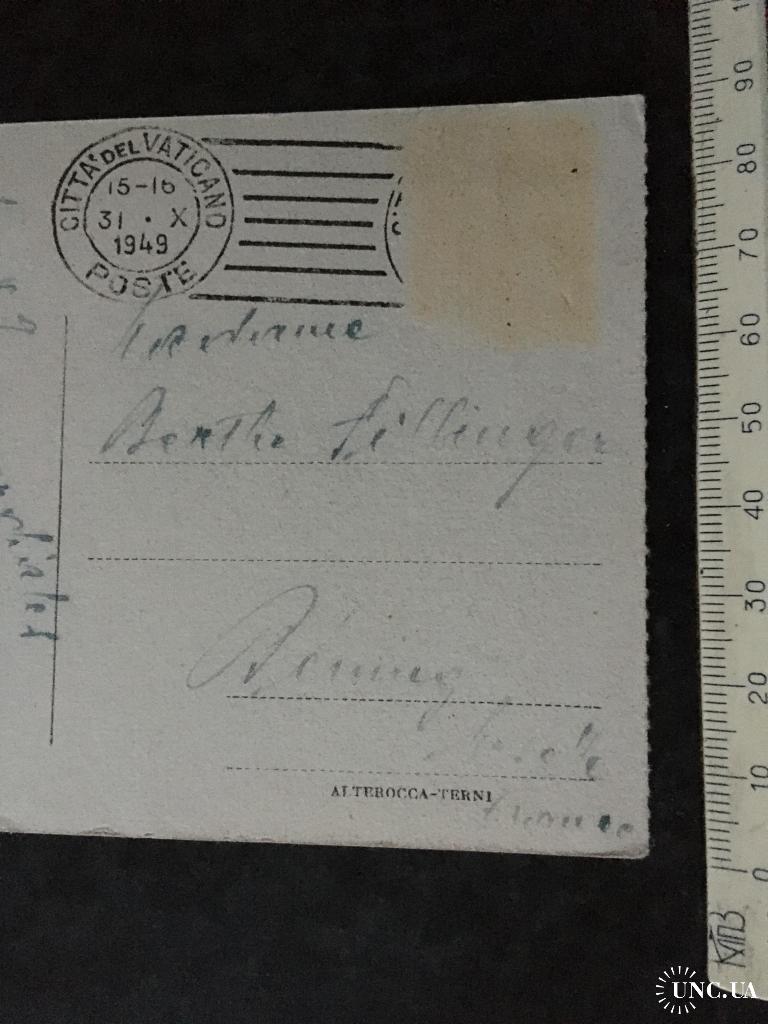 CITTA' DEL VATICANO
15-16
31 · X
1949
POSTE
Madame
Berthe Fillinger
Béning
Moselle
France
ALTEROCCA-TERNI
10
90
80
70
60
50
40
30
20
10
0
UNC.UA